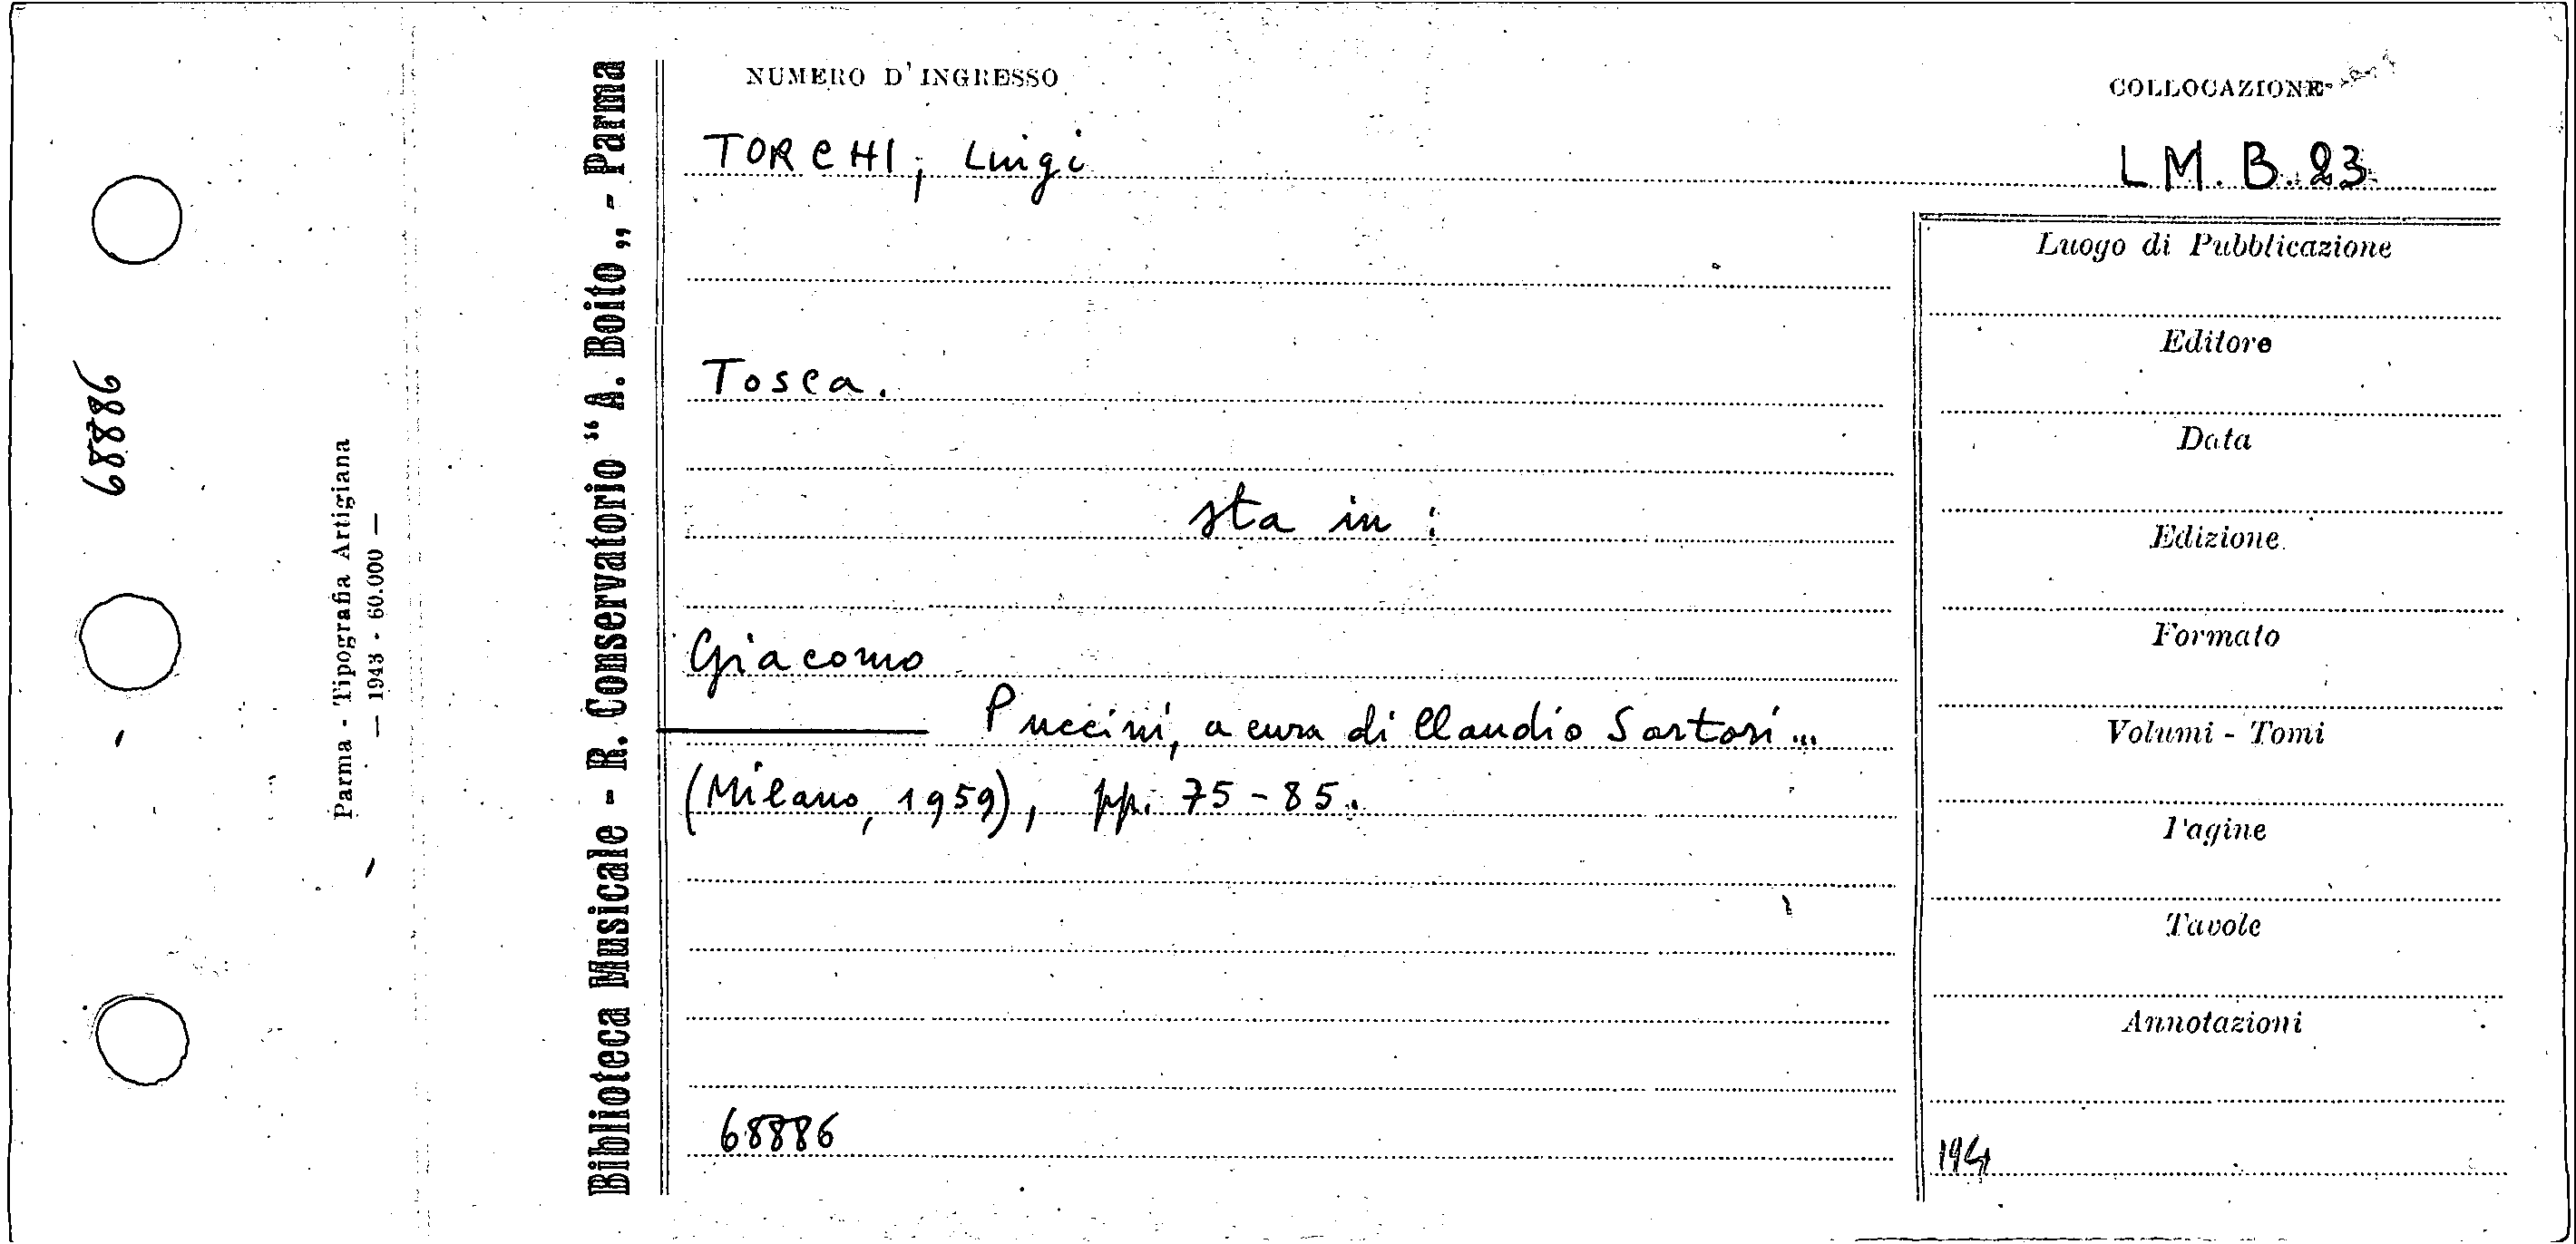 68886
Parma - Tipografia Artigiana
— 1943 - 60.000 —
Biblioteca Musicale - R. Conservatorio "A. Boito„ - Parma
NUMERO D'INGRESSO
COLLOCAZIONE
TORCHI, Luigi
LM. B. 23
Tosca.
sta in :
Giacomo
Puccini, a cura di Claudio Sartori...
(Milano, 1959), pp. 75-85.
68886
Luogo di Pubblicazione
Editore
Data
Edizione
Formato
Volumi - Tomi
Pagine
Tavole
Annotazioni